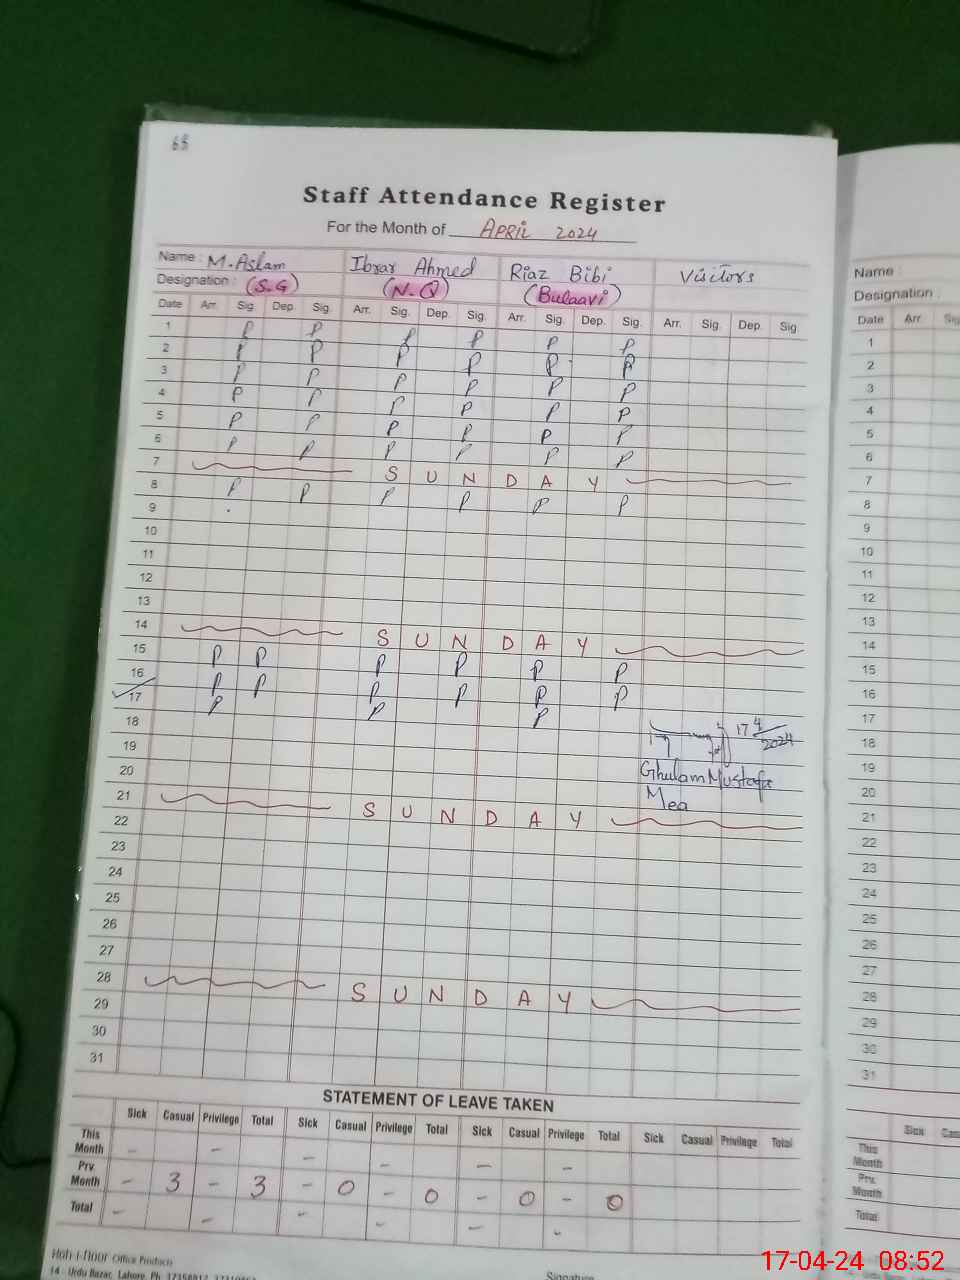 65
Staff Attendance Register
For the Month of APRIL 2024
Name : M. Aslam Ibrar Ahmed Riaz Bibi Visitors
Designation : (S.G) (N.Q) (Bulaavi)
Date Arr. Sig. Dep. Sig. Arr. Sig. Dep. Sig. Arr. Sig. Dep. Sig. Arr. Sig. Dep. Sig.
1 P P P P P P
2 P P P P P P
3 P P P P P P
4 P P P P P P
5 P P P P P P
6 P P P P P P
7 SUNDAY
8 P P P P P P
9
10
11
12
13
14 SUNDAY
15 P P P P P P
16 P P P P P P
17 P P P
18 17 4
19 2024
20 Ghulam Mustafa
21 Mea
22 SUNDAY
23
24
25
26
27
28 SUNDAY
29
30
31
STATEMENT OF LEAVE TAKEN
Sick Casual Privilege Total Sick Casual Privilege Total Sick Casual Privilege Total Sick Casual Privilege Total
This Month - - - - - -
Prv. Month - 3 - 3 - 0 - 0 - 0 - 0
Total - - - - - -
Office Products
14 - Urdu Bazar, Lahore. Ph:
Signature
Name :
Designation :
Date Arr.
1
2
3
4
5
6
7
8
9
10
11
12
13
14
15
16
17
18
19
20
21
22
23
24
25
26
27
28
29
30
31
Sick
This Month
Prv. Month
Total
17-04-24 08:52